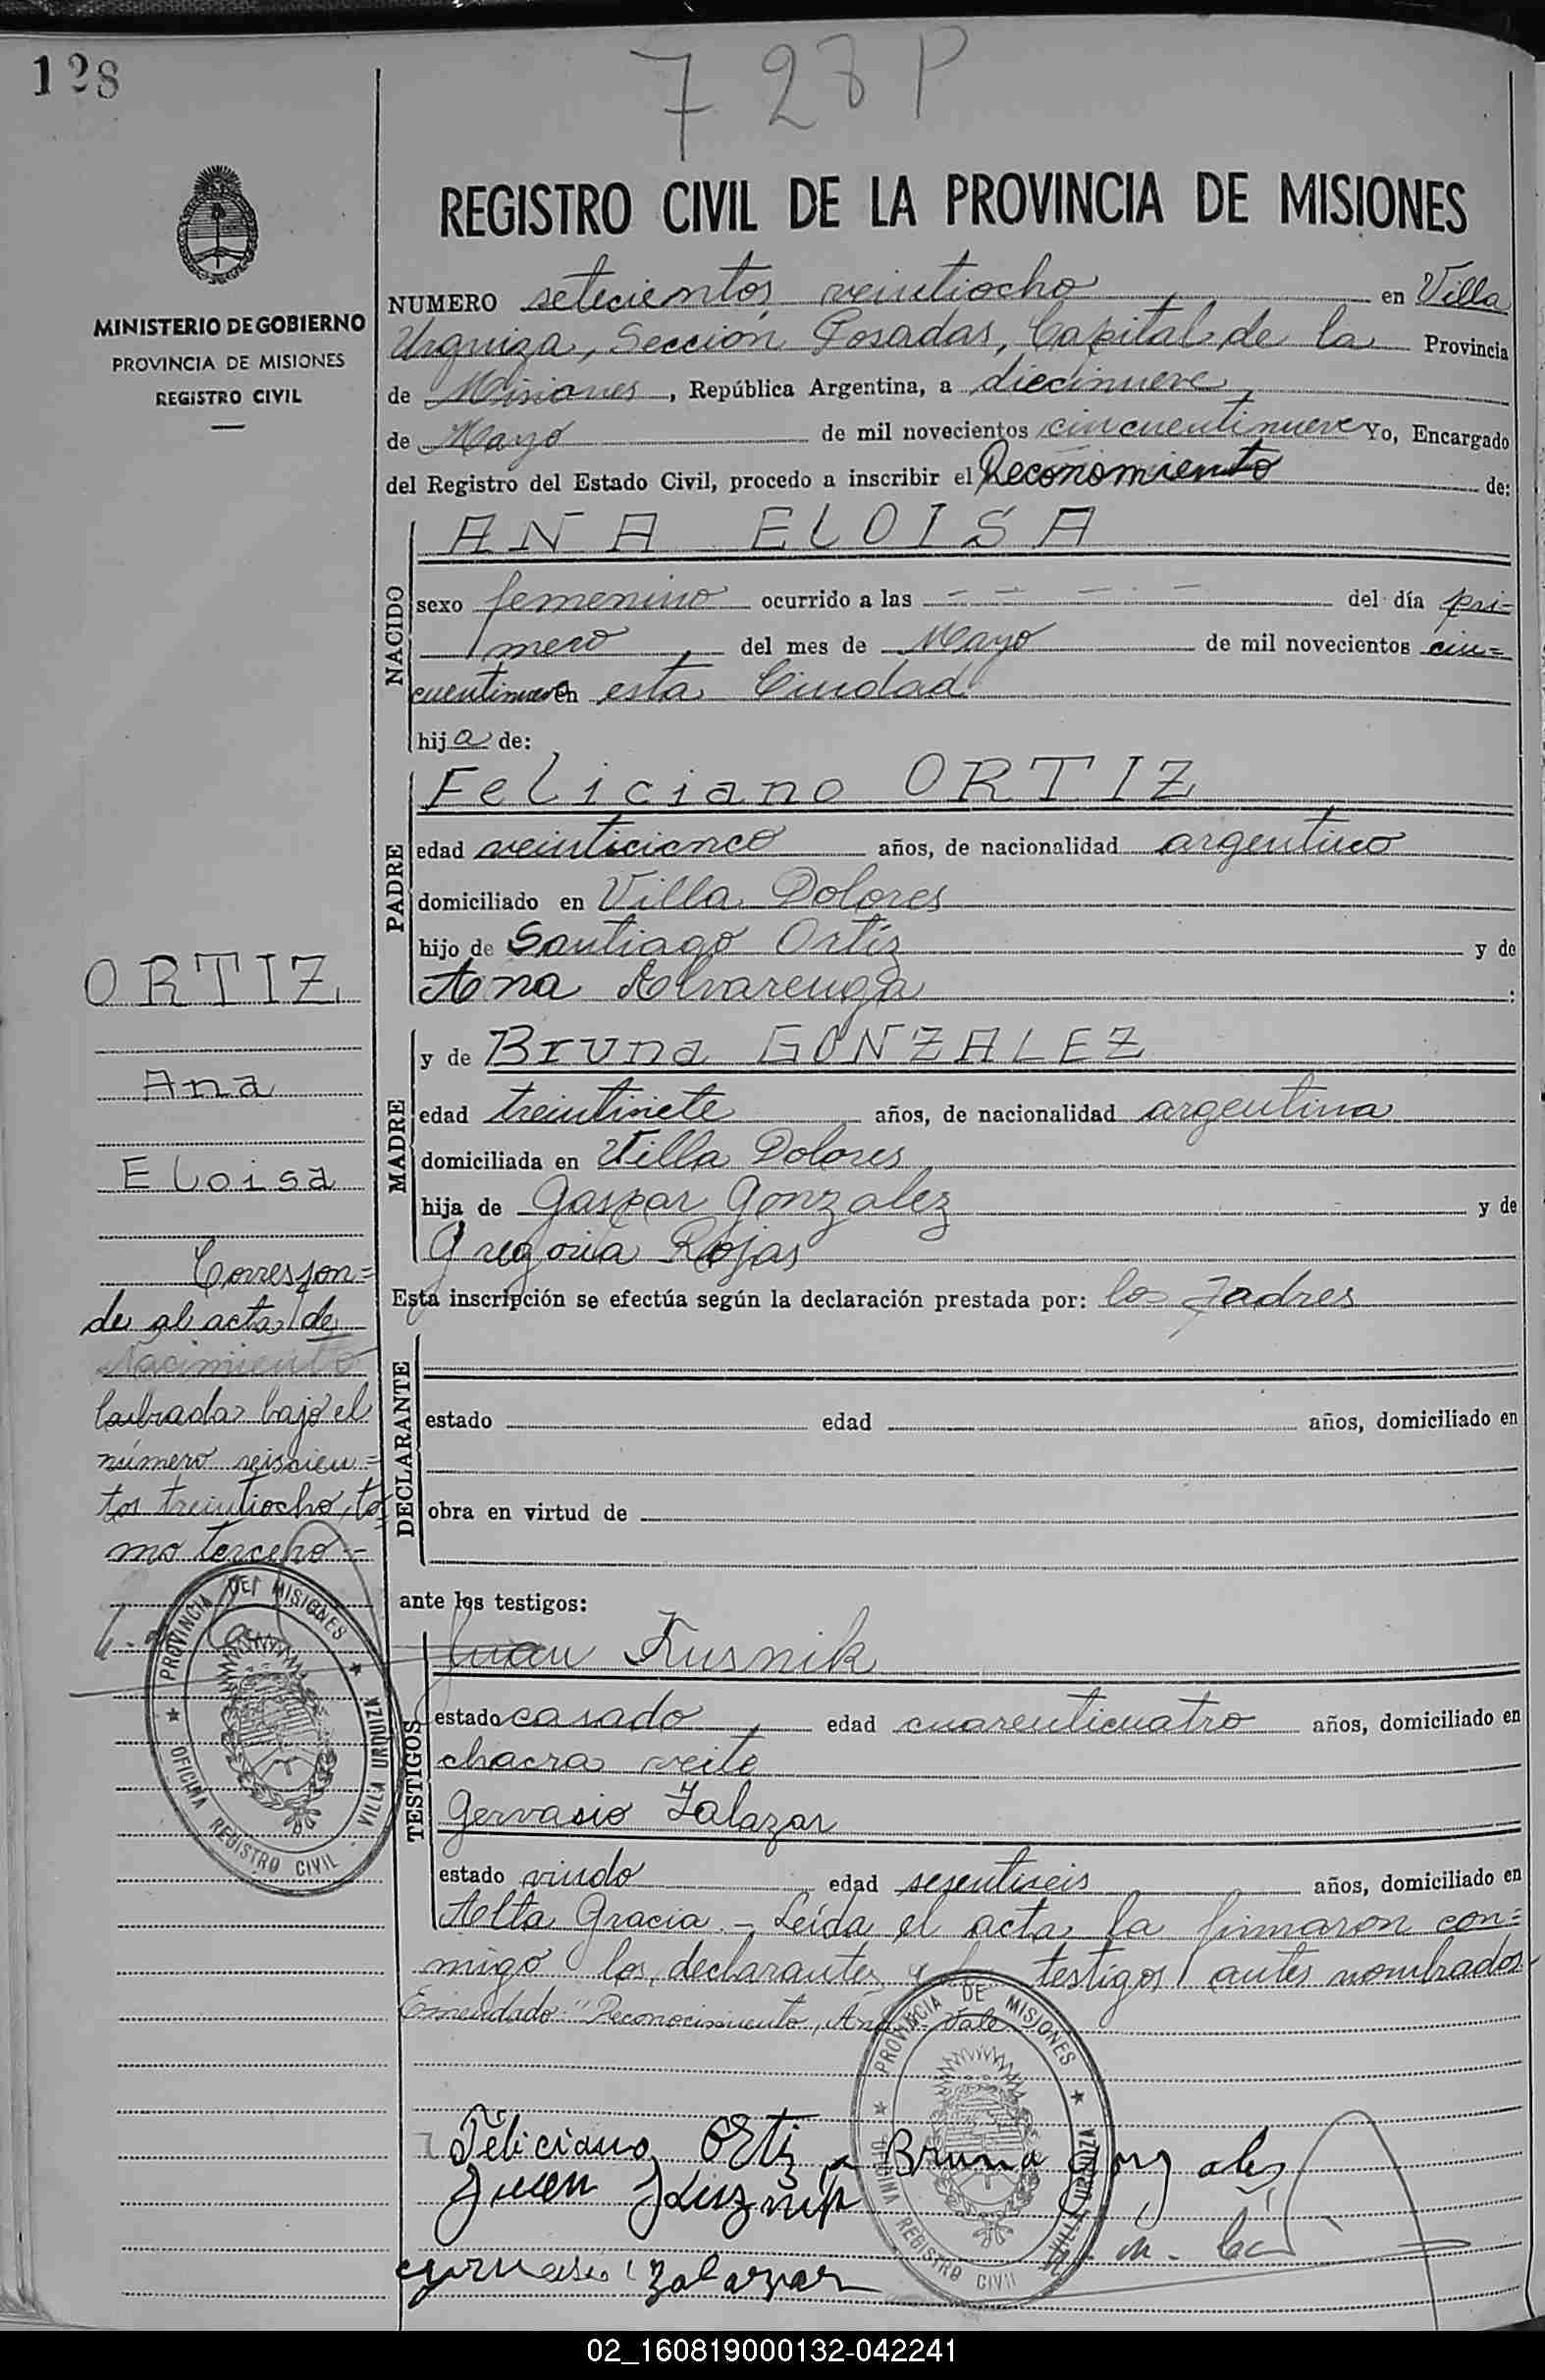 128
728 P
REGISTRO CIVIL DE LA PROVINCIA DE MISIONES
MINISTERIO DE GOBIERNO
PROVINCIA DE MISIONES
REGISTRO CIVIL
NUMERO setecientos veintiocho en Villa
Urquiza, Sección Posadas, Capital de la Provincia
de Misiones, República Argentina, a diecinueve
de Mayo de mil novecientos cincuentinueve Yo, Encargado
del Registro del Estado Civil, procedo a inscribir el Reconomiento de:
NACIDO
ANA ELOISA
sexo femenino ocurrido a las - - - - - del día pri=
mero del mes de Mayo de mil novecientos cin=
cuentinueve en esta Ciudad
hija de:
PADRE
Feliciano ORTIZ
edad veinticinco años, de nacionalidad argentino
domiciliado en Villa Dolores
hijo de Santiago Ortíz y de
Ana Alvarenga :
MADRE
y de Bruna GONZALEZ
edad treintisiete años, de nacionalidad argentina
domiciliada en Villa Dolores
hija de Gaspar Gonzalez y de
Gregoria Rojas
Esta inscripción se efectúa según la declaración prestada por: los padres
DECLARANTE
estado edad años, domiciliado en
obra en virtud de
ante los testigos:
TESTIGOS
Juan Kusnik
estado casado, edad cuarenticuatro años, domiciliado en
chacra veite
Gervasio Zalazar
estado viudo edad sesentiseis años, domiciliado en
Alta Gracia. - Leída el acta la firmaron con=
migo los declarantes y los testigos antes nombrados
Emendado: "Reconocimiento, Ana" Vale
Feliciano Ortiz Bruna Gonzales
Juan
Gervasio Zalazar
ORTIZ
Ana
Eloisa
Correspon=
de al acta de
Nacimiento
labrada bajo el
número seiscien=
tos treintiocho, to
mo tercero -
PROVINCIA DE MISIONES
OFICINA REGISTRO CIVIL
VILLA URQUIZA
PROVINCIA DE MISIONES
OFICINA REGISTRO CIVIL
VILLA URQUIZA
02_160819000132-042241